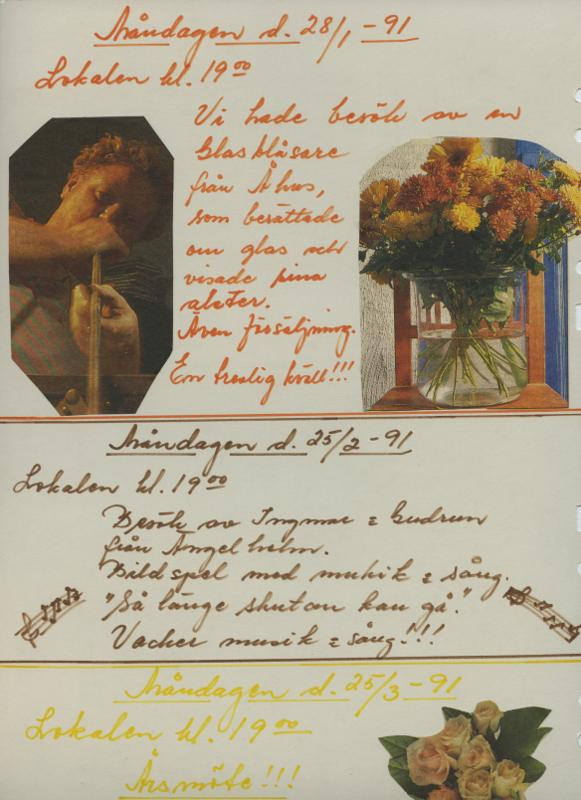 Måndagen d. 28/1 -91
Lokalen kl. 19⁰⁰
Vi hade besök av en
Glasblåsare
från Åhus,
som berättade
om glas och
visade sina
alster.
Även försäljning.
En trevlig kväll!!!
Måndagen d. 25/2 -91
Lokalen kl. 19⁰⁰
Besök av Ingmar & Gudrun
från Ängelholm.
Bildspel med musik & sång.
"Så länge skutan kan gå."
Vacker musik & sång!!!
Måndagen d. 25/3 -91
Lokalen kl. 19⁰⁰
Årsmöte!!!